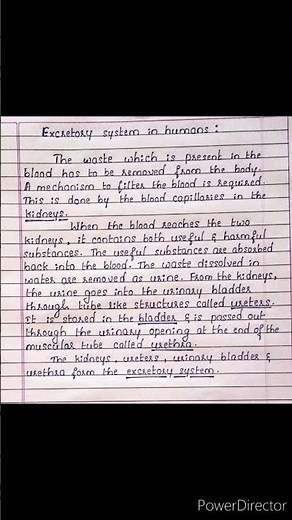 Excretory system in humans :
The waste which is present in the
blood has to be removed from the body.
A mechanism to filter the blood is required.
This is done by the blood capillaries in the
kidneys.
When the blood reaches the two
kidneys, it contains both useful & harmful
substances. The useful substances are absorbed
back into the blood. The waste dissolved in
water are removed as urine. From the kidneys,
the urine goes into the urinary bladder
through tube like structures called ureters.
It is stored in the bladder & is passed out
through the urinary opening at the end of the
muscular tube called urethra.
The kidneys, ureters, urinary bladder &
urethra form the excretory system.
PowerDirector